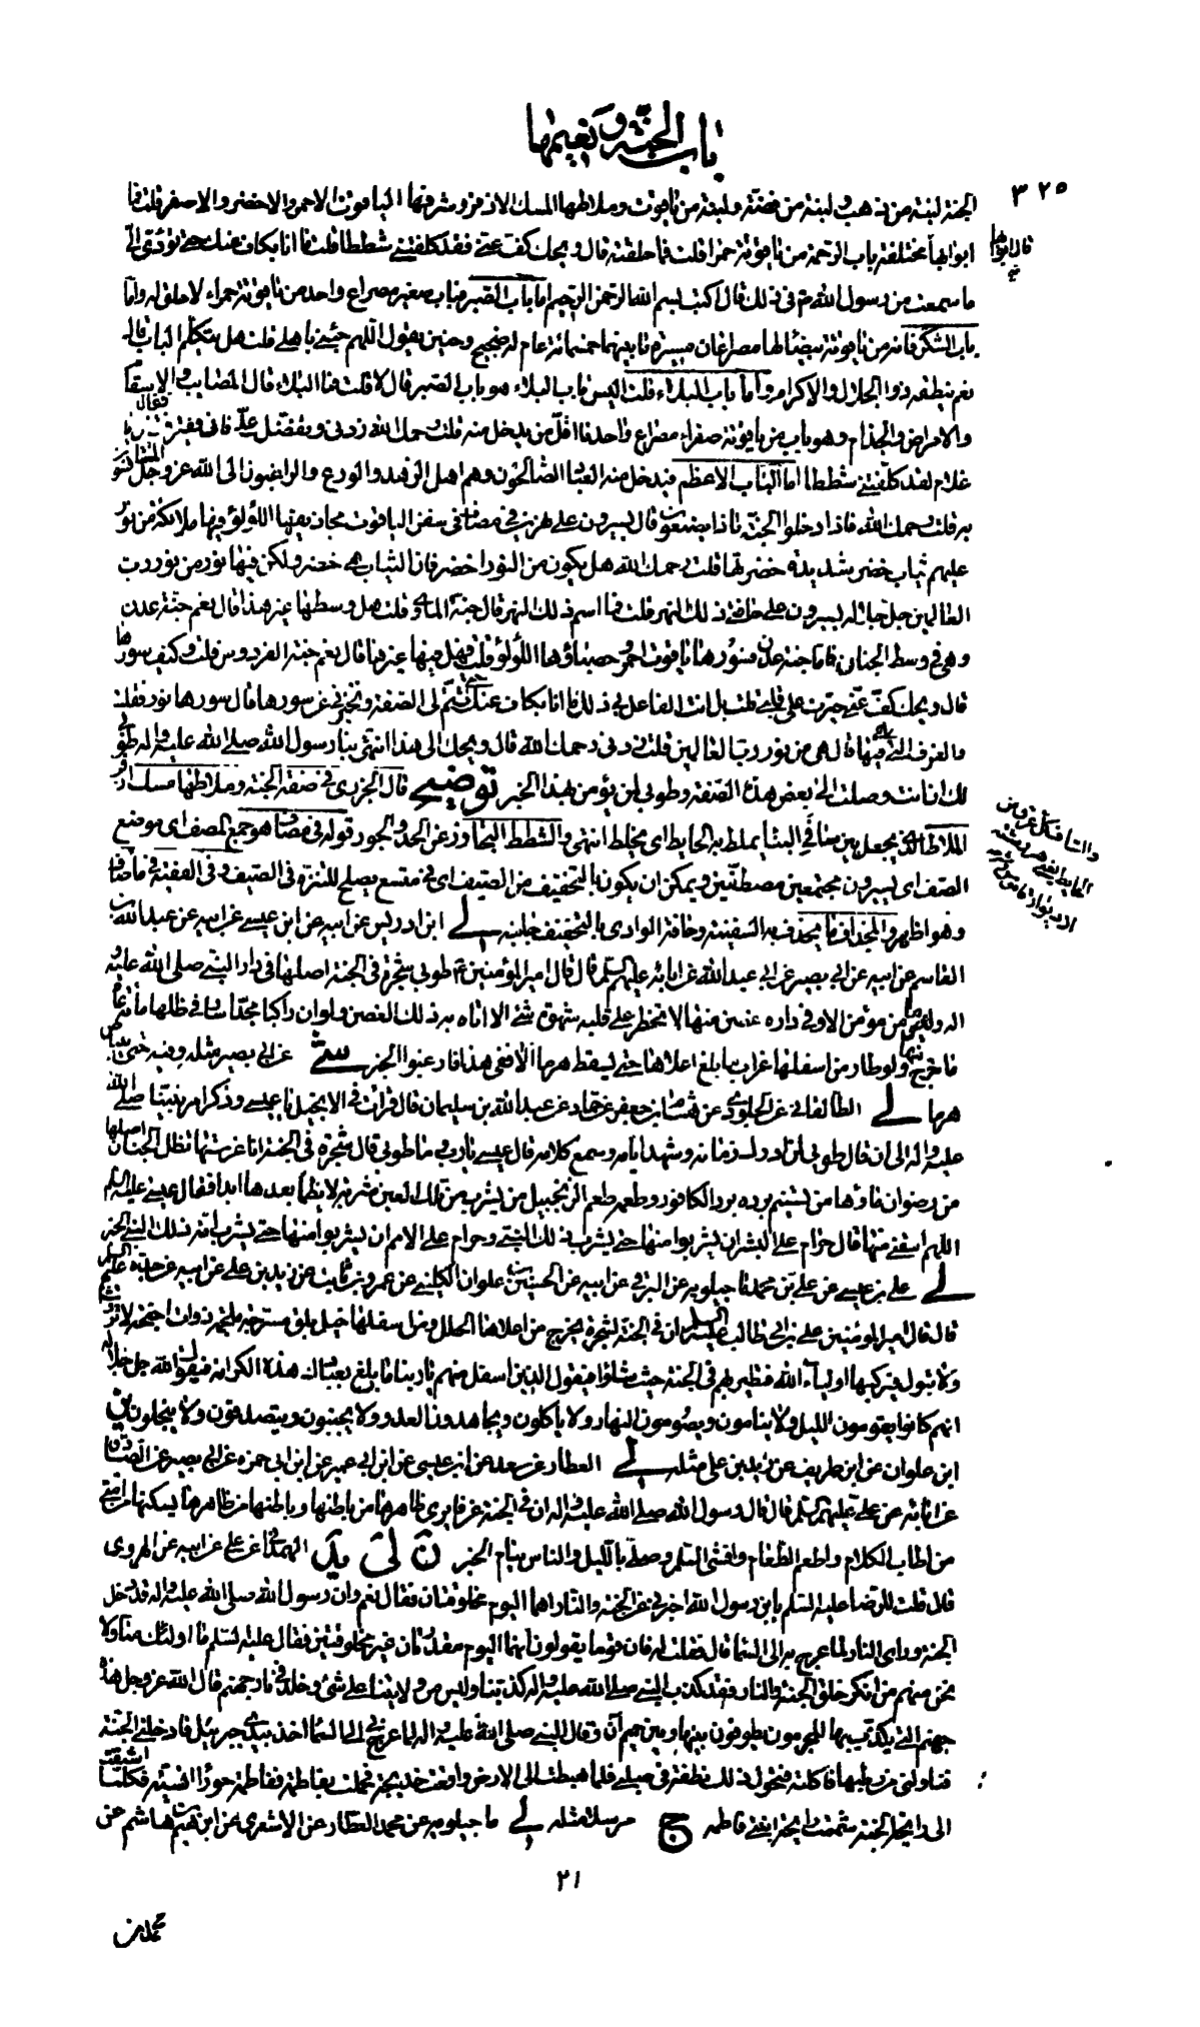 باب الجنة و نعيمها
٣٢٥
الجنة لبنة من ذهب و لبنة من فضة و لبنة من ياقوت و ملاطها المسك الاذفر و شرفها الياقوت الاحمر و الاخضر و الاصفر قلت فما
ابوابها مختلفة باب الرحمة من ياقوتة حمرا قلت فما حلقته قال ويحك كف عني فقد كلفتني شططا قلت ما انا بكاف عنك حتى تؤدي الي
قال ابوابها
ما سمعت من رسول الله ص في ذلك قال اكتب بسم الله الرحمن الرحيم اما باب الصبر فباب صغير مصراع واحد من ياقوتة حمراء لا حلق له و اما
باب الشكر فانه من ياقوتة بيضا لها مصراعان مسيرة ما بينهما خمسمائة عام له ضجيج و حنين يقول اللهم جئني باهلي قلت هل يتكلم الباب قال
نعم ينطقه ذو الجلال و الاكرام و اما باب البلاء قلت اليس باب البلاء هو باب الصبر قال لا قلت فما البلاء قال المصايب و الاسقام
و الامراض و الجذام و هو باب من ياقوتة صفراء مصراع واحد ما اقل من يدخل منه قلت رحمك الله زدني و تفضل علي فاني فقير فقال يا
غلام لقد كلفتني شططا اما الباب الاعظم فيدخل منه العباد الصالحون و هم اهل الزهد و الورع و الراغبون الى الله عز و جل المستانسون
به قلت رحمك الله فاذا دخلوا الجنة ماذا يصنعون قال يسيرون على نهرين في مصاف في سفن الياقوت مجاذيفها اللؤلؤ فيها ملائكة من نور
عليهم ثياب خضر شديدة خضرتها قلت رحمك الله هل يكون من النور اخضر قال ان الثياب هي خضر و لكن فيها نور من نور رب
العالمين جل جلاله يسيرون على حافتي ذلك النهر قلت فما اسم ذلك النهر قال جنة الماوى قلت هل وسطها غير هذا قال نعم جنة عدن
و هي في وسط الجنان فاما جنة عدن فسورها ياقوت احمر و حصباؤها اللؤلؤ قلت فهل فيها غيرها قال نعم جنة الفردوس قلت و كيف سورها
قال ويحك كف عني حيرت علي قلبي قلت بل انت الفاعل بي ذلك ما انا بكاف عنك حتى تتم لي الصفة و تخبرني عن سورها قال سورها نور فقلت
ما الغرف التي هي فيها قال هي من نور رب العالمين قلت زدني رحمك الله قال ويحك الى هذا انتهى بنا رسول الله صلى الله عليه و اله طوبى
لك ان انت وصلت الى بعض هذه الصفة و طوبى لمن يؤمن بهذا الخبر توضيح قال الجزري في صفة الجنة و ملاطها مسك اذفر
الملاط الذي يجعل بين سافي البنا يملط به الحايط اي يخلط انتهى و الشطط التجاوز عن الحد و الجور قوله في مصاف هو جمع المصف اي موضع
الصف اي يسيرون مجتمعين مصطفين و يمكن ان يكون بالتخفيف من الصيف اي في متسع يصلح للتنزه في الصيف و في الفقيه في ماء صاف
و هو اظهر و المجذاف ما يجذف به السفينة و حافة الوادي بالتخفيف جانبه لي ابن ادريس عن ابيه عن ابن عيسى عن ابيه عن عبد الله بن
القاسم عن ابيه عن ابي بصير عن ابي عبد الله عن ابائه عليهم السلم قال قال امير المؤمنين ع طوبى شجرة في الجنة اصلها في دار النبي صلى الله عليه و
اله و ليس من مؤمن الا و في داره غصن منها لا يخطر على قلبه شهوة شئ الا اتاه به ذلك الغصن و لو ان راكبا مجدا سار في ظلها مائة عام
ما خرج منها و لو طار من اسفلها غراب ما بلغ اعلاها حتى يسقط هرما الا ففي هذا فارغبوا الخبر شي عن ابي بصير مثله و فيه حتى يبياض
هرما لي الطالقاني عن الجلودي عن هشام بن جعفر عن حماد عن عبد الله بن سليمان قال قرات في الانجيل يا عيسى و ذكر امر نبينا صلى الله
عليه و اله الى ان قال طوبى لمن ادرك زمانه و شهد ايامه و سمع كلامه قال عيسى يا رب و ما طوبى قال شجرة في الجنة انا غرستها تظل الجنان اصلها
من رضوان ماؤها من تسنيم برده برد الكافور و طعمه طعم الزنجبيل من يشرب من تلك العين شربة لا يظما بعدها ابدا فقال عيسى عليه السلم
اللهم اسقني منها قال حرام على البشر ان يشربوا منها حتى يشرب ذلك النبي و حرام على الامم ان يشربوا منها حتى يشرب امة ذلك النبي الخبر
لي علي بن عيسى عن علي بن محمد ماجيلويه عن البرقي عن ابيه عن الحسين بن علوان الكلبي عن عمرو بن ثابت عن زيد بن علي عن ابيه عن جده عليهم السلم
قال قال امير المؤمنين علي بن ابي طالب عليه السلم ان في الجنة لشجرة يخرج من اعلاها الحلل و من اسفلها خيل بلق مسرجة ملجمة ذوات اجنحة لا تروث
و لا تبول فيركبها اولياء الله فتطير بهم في الجنة حيث شاؤا فيقول الذين اسفل منهم يا ربنا ما بلغ بعبادك هذه الكرامة فيقول الله جل جلاله
انهم كانوا يقومون الليل و لا ينامون و يصومون النهار و لا ياكلون و يجاهدون العدو و لا يجبنون و يتصدقون و لا يبخلون ين
ابن علوان عن ابن طريف عن زيد بن علي مثله لي العطار عن سعد عن ابن عيسى عن ابن ابي عمير عن ابن ابي حمزة عن ابي بصير عن الصادق
عن ابائه عن علي عليهم السلم قال قال رسول الله صلى الله عليه و اله ان في الجنة غرفا يرى ظاهرها من باطنها و باطنها من ظاهرها يسكنها من امتي
من اطاب الكلام و اطعم الطعام و افشى السلم و صلى بالليل و الناس نيام الخبر ن لي يد الهمداني عن علي عن ابيه عن الهروي
قال قلت للرضا عليه السلم يابن رسول الله اخبرني عن الجنة و النار اهما اليوم مخلوقتان فقال نعم و ان رسول الله صلى الله عليه و اله قد دخل
الجنة و راى النار لما عرج به الى السما قال فقلت له فان قوما يقولون انهما اليوم مقدرتان غير مخلوقتين فقال عليه السلم ما اولئك منا و لا
نحن منهم من انكر خلق الجنة و النار فقد كذب النبي صلى الله عليه و اله و كذبنا و ليس من ولايتنا على شئ و خلد في نار جهنم قال الله عز و جل هذه
جهنم التي يكذب بها المجرمون يطوفون بينها و بين حميم آن و قال النبي صلى الله عليه و اله لما عرج بي الى السما اخذ بيدي جبرئيل فادخلني الجنة
فناولني من رطبها فاكلته فتحول ذلك نطفة في صلبي فلما هبطت الى الارض واقعت خديجة فحملت بفاطمة ففاطمة حوراء انسية فكلما اشتقت
الى رايحة الجنة شممت رايحة ابنتي فاطمة ج مرسلا مثله لي ماجيلويه عن محمد العطار عن الاشعري عن ابن هاشم عن
٢١